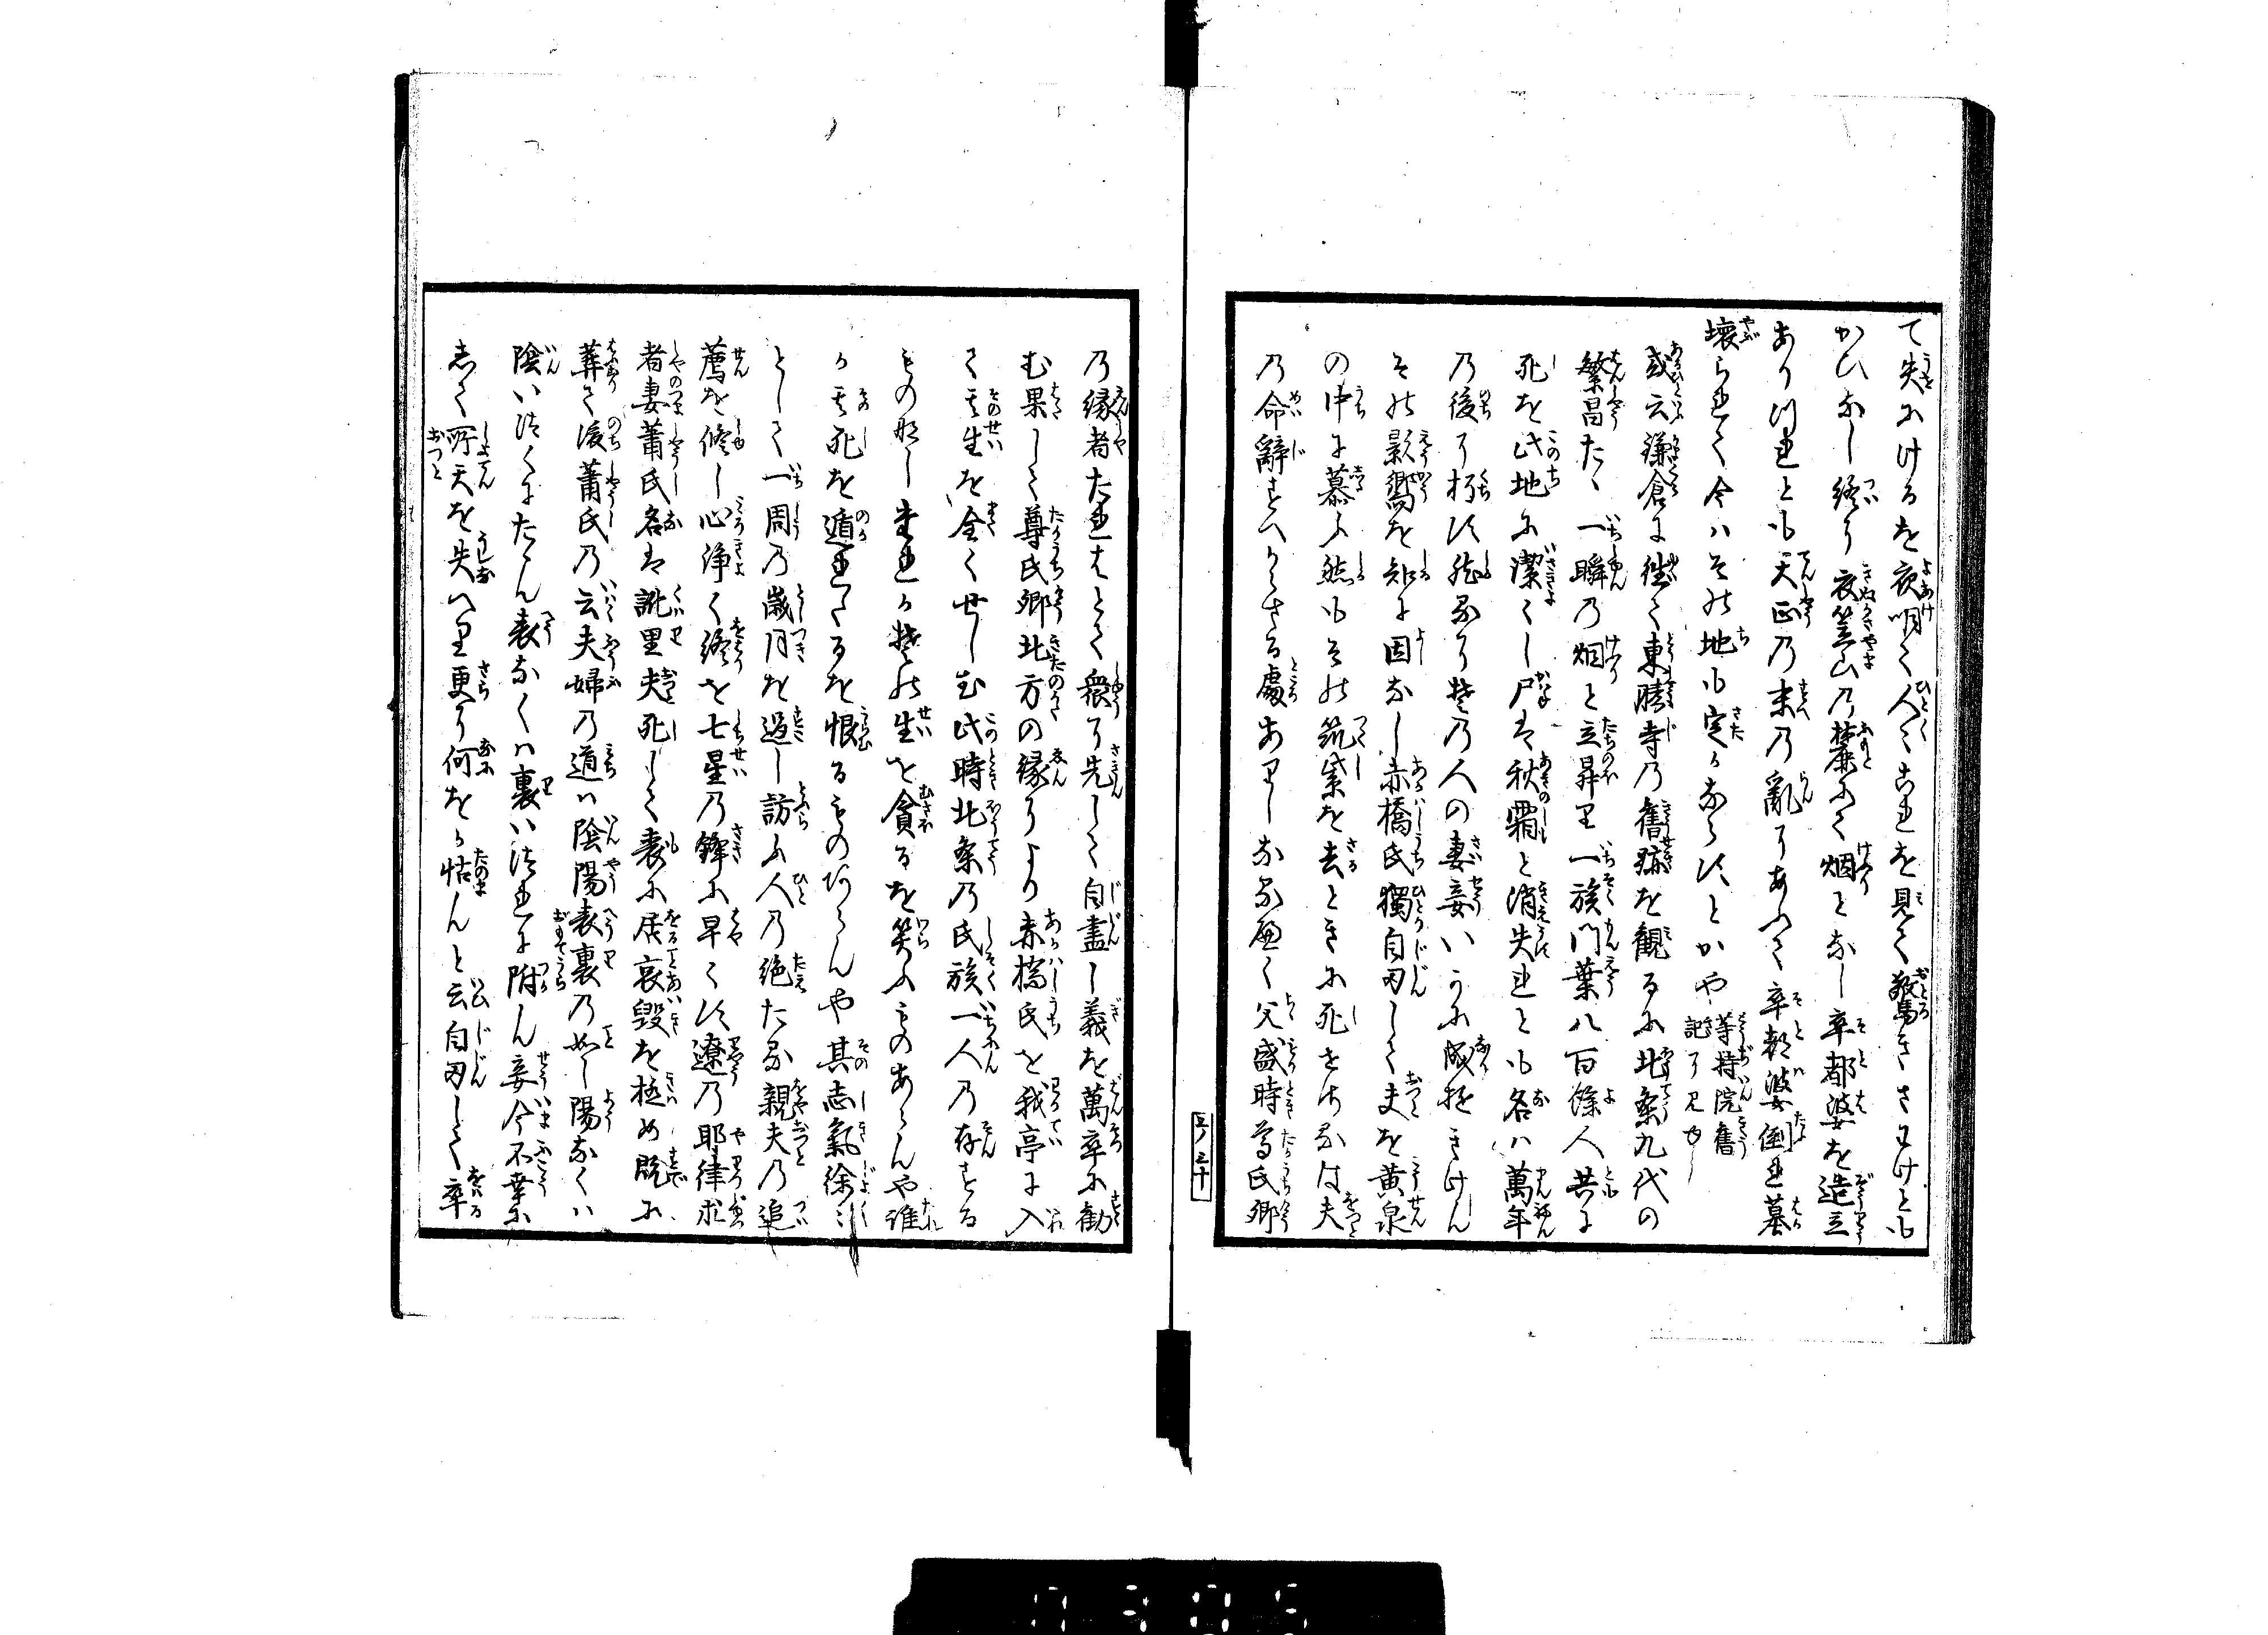 て失にけるを夜明て人〻これを見て驚きさわけとも
かひなし終に衣笠山の麓にて烟となし卒都婆を造立
ありつれとも天正の末の亂にあふて卒都婆倒れ墓
壊られて今はその地も定かならすとかや 等持院舊記に見ゆ
或云鎌倉に徃て東勝寺の舊跡を観るに北条九代の
繁昌たゝ一瞬の烟と立昇り一族門葉八百餘人共に
死を此地に潔くし尸は秋霜と消失れとも名は萬年
の後に朽す然るに其の人の妻妾いかに成行きけん
その影嚮を知に因なし赤橋氏獨自刃して夫を黄泉
の中に慕ふ然もその筑紫を去ときに死せさるは夫
の命辭すへからさる處ありしなるへく父盛時尊氏卿
の縁者たれはとて衆に先して自盡し義を萬卒に勧
む果して尊氏卿北方の縁により赤橋氏を我亭に入
て其生を全くせしむ此時北条の氏族一人の存する
もの無し誰か其の生を貪るを笑ふものあらんや誰
か其死を遁れたるを恨るものあらんや其志氣徐〻
として一周の歳月を過し訪ふ人の絶たる親夫の追
薦を修し心浄く終を七星の鋒に早くす遼の耶律求
者妻蕭氏名は訛里夫死して喪に居哀毀を極め既に
葬て後蕭氏の云夫婦の道は陰陽表裏の如し陽なくは
陰いつくにたゝん表なくは裏いつれに附ん妾今不幸に
して所天を失へり更に何をか怙んと云自刃して卒
五ノ三十